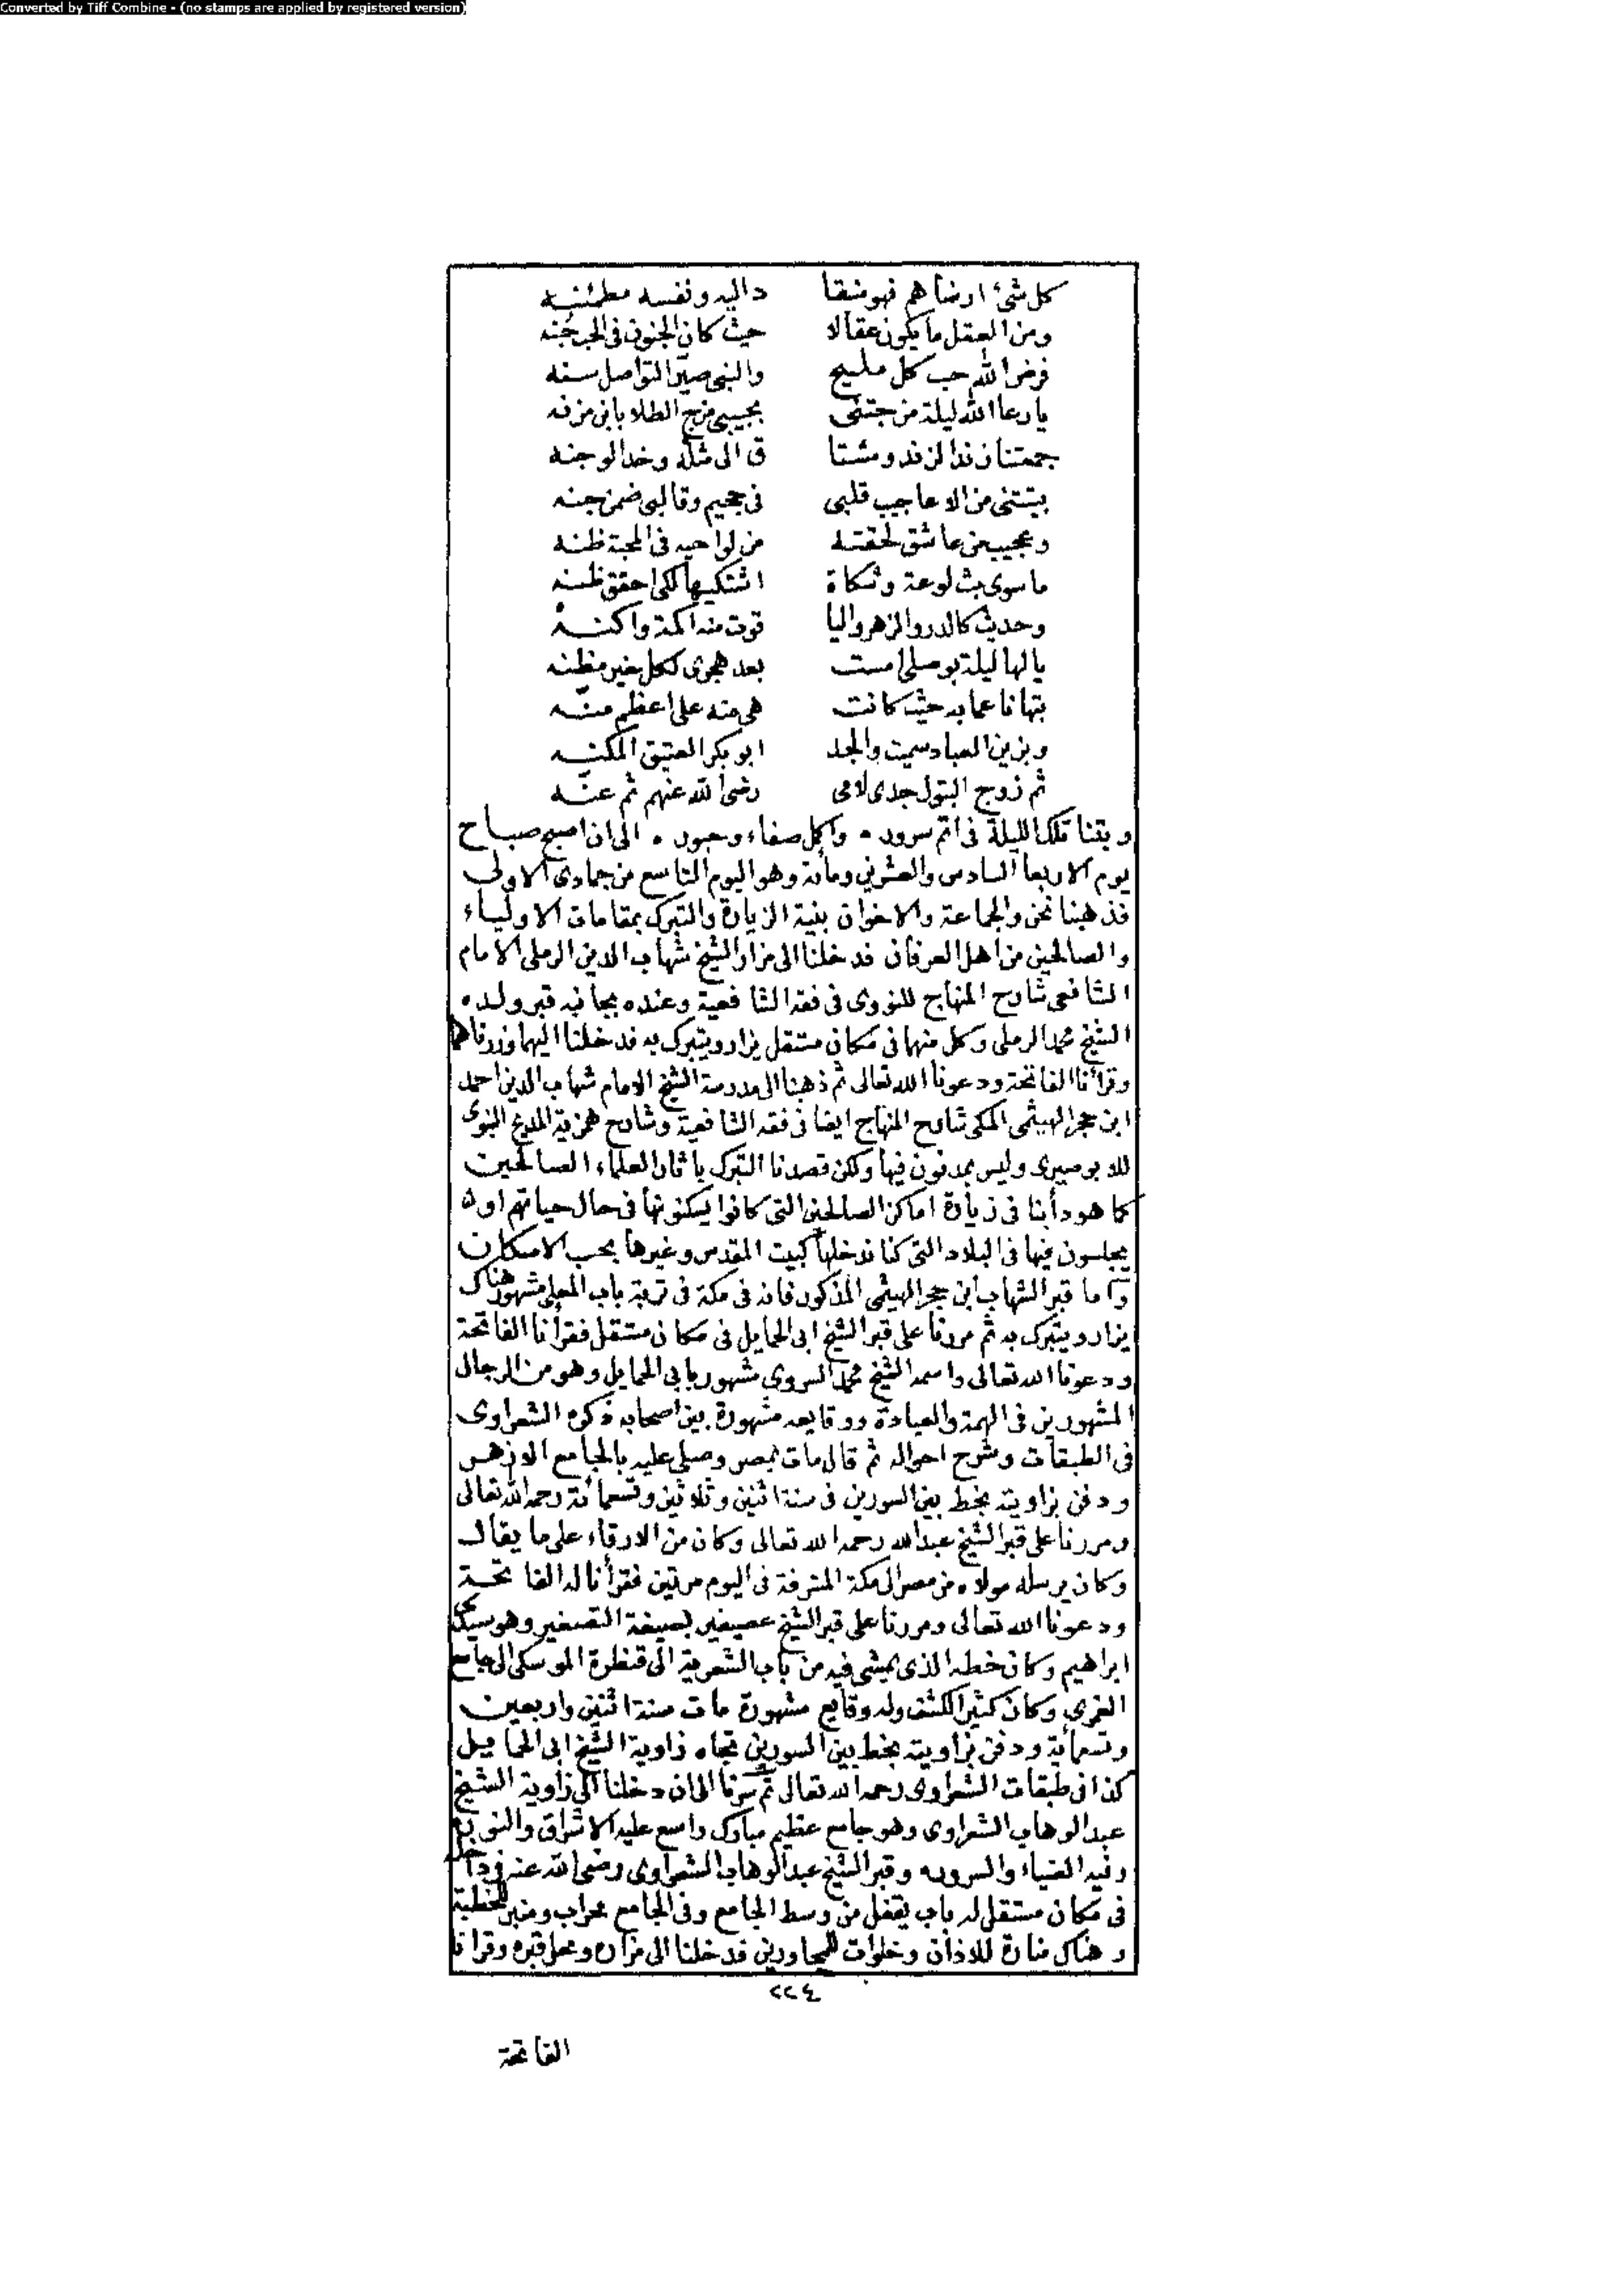 Converted by Tiff Combine - (no stamps are applied by registered version)
كل شئ ارضاهم فهو منقا داليه ونفسه مطمئنه
ومن العقل ما يكون عقالا حيث كان الجنون في الحب جنه
فرض الله حب كل مليح والنبي صير التواصل سنه
يا رعا الله ليلة من جتني بحبيبي مزج الطلا بابن مزنه
جمعتنا زندا لزند ومشتا ق الى شكله وخدا لوجنه
بيتتني من الاعاجيب قلبي في جحيم وقالبي ضمن جنه
وعجيب من عاشق لحقته من لواحيه في المحبة ظنه
ما سوى بث لوعة وشكاة اشتكيها لكي احقق ظنه
وحديث كالدر والزهر واليا قوت منه اكمة واكنه
يا لها ليلة بوصلي امست بعد هجري لكل خير مظنه
بتها ناعما به حيث كانت هي منه علي اعظم منه
وبزين العباد سميت والجد ابو بكر العتيق المكنه
ثم زوج البتول جدي لامي رضي الله عنهم ثم عنه
وبتنا تلك الليلة في اتم سرور ٠ واكمل صفاء وحبور ٠ الى ان اصبح صباح
يوم الاربعا السادس والعشرين ومائة وهو اليوم التاسع من جمادى الاولى
فذهبنا نحن والجماعة والاخوان بنية الزيارة والتبرك بمقامات الاولياء
والصالحين من اهل العرفان فدخلنا الى مزار الشيخ شهاب الدين الرملي الامام
الشافعي شارح المنهاج للنووى في فقه الشافعية وعنده بجانبه قبر ولده
الشيخ محمد الرملي وكل منهما في مكان مستقل يزار ويتبرك به فدخلنا اليهما وزرناهما
وقرأنا الفاتحة ودعونا الله تعالى ثم ذهبنا الى مدرسة الشيخ الامام شهاب الدين احمد
ابن حجر الهيثمي المكي شارح المنهاج ايضا في فقه الشافعية وشارح همزية المديح النبوى
للابوصيرى وليس بمدفون فيها ولكن قصدنا التبرك باثار العلماء الصالحين
كما هو دأبنا في زيارة اماكن الصالحين التي كانوا يسكنونها في حال حياتهم او
يجلسون فيها في البلاد التي كنا ندخلها كبيت المقدس وغيرها بحسب الامكان
واما قبر الشهاب ابن حجر الهيثمي المذكور فانه في مكة في تربة باب المعلى مشهور هناك
يزار ويتبرك به ثم مررنا على قبر الشيخ ابي الحمايل في مكان مستقل فقرأنا الفاتحة
ودعونا الله تعالى واسمه الشيخ محمد السروي مشهور بابي الحمايل وهو من الرجال
المشهورين في الهمة والعبادة ووقايعه مشهورة بين اصحابه ذكره الشعراوى
في الطبقات وشرح احواله ثم قال مات بمصر وصلي عليه بالجامع الازهر
ودفن بزاويته بخط بين السورين في سنة اثنين وثلاثين وتسعمائة رحمه الله تعالى
ومررنا على قبر الشيخ عبدالله رحمه الله تعالى وكان من الارقاء على ما يقال
وكان يرسله مولاه من مصر الى مكة المشرفة في اليوم مرتين فقرأنا له الفاتحة
ودعونا الله تعالى ومررنا على قبر الشيخ عصيفير بصيغة التصغير وهو سيدى
ابراهيم وكان خطه الذى يمشي فيه من باب الشعرية الى قنطرة الموسكي الى جامع
الغمري وكان كثير الكشف وله وقايع مشهورة مات سنة اثنين واربعين
وتسعمائة ودفن بزاويته بخط بين السورين تجاه زاوية الشيخ ابي الحمايل
كذا في طبقات الشعراوى رحمه الله تعالى ثم سرنا الى ان دخلنا الى زاوية الشيخ
عبد الوهاب الشعراوى وهو جامع عظيم مبارك واسع عليه الاشراق والنور
وفيه الضياء والسرور وقبر الشيخ عبد الوهاب الشعراوى رضي الله عنه في داخل
في مكان مستقل له باب يقفل من وسط الجامع وفي الجامع محراب ومنبر للخطبة
وهناك منارة للاذان وخلوات للمجاورين فدخلنا الى مزاره ومحل قبره وقرانا
٢٢٤
الفاتحة